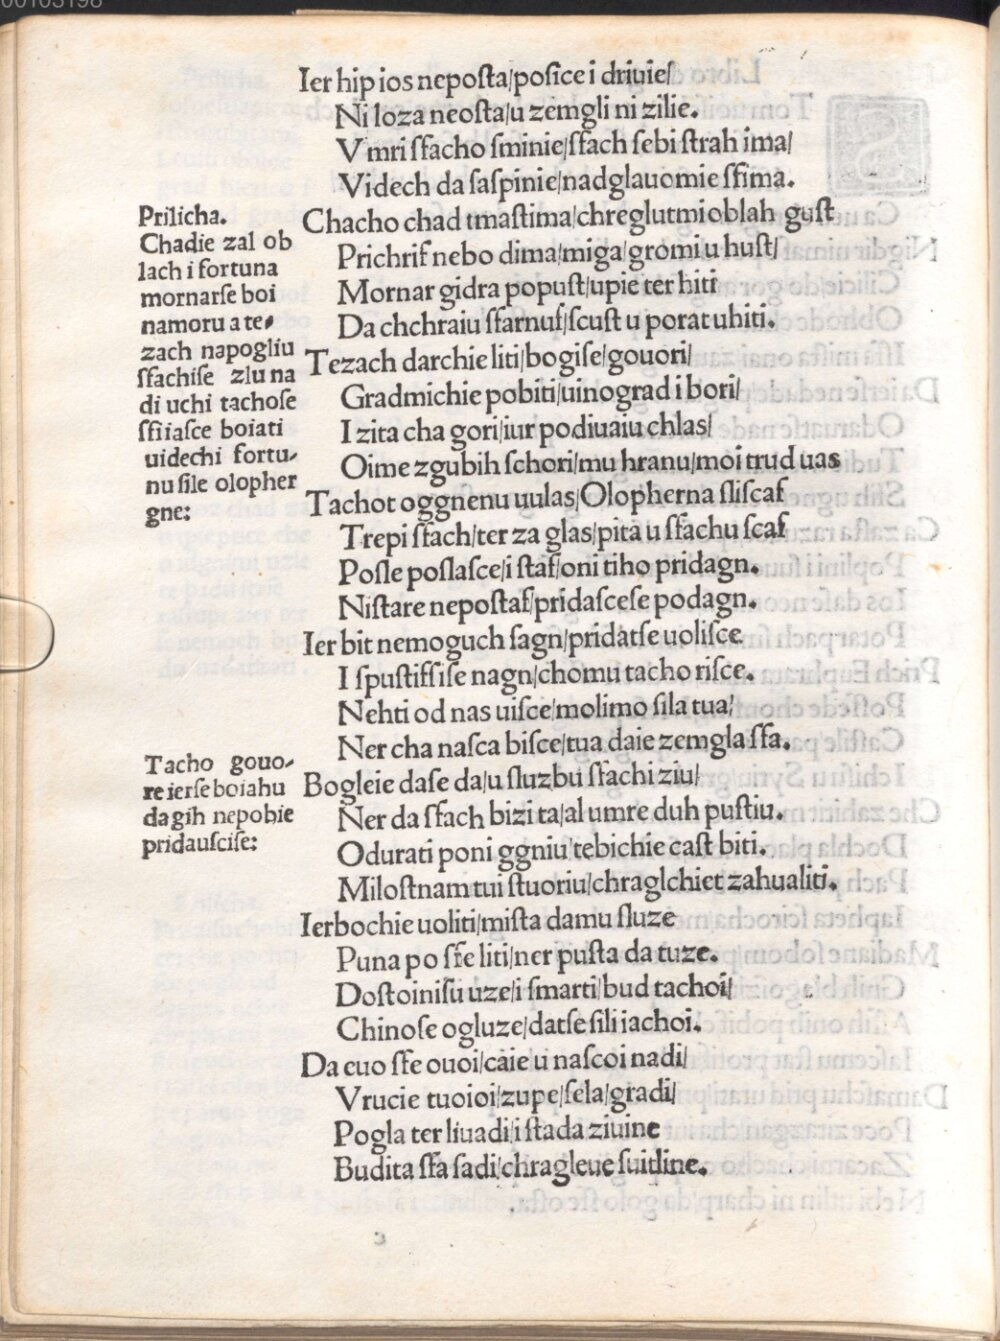 00103198
Ier hip ios neposta/posice i driuie/
Ni loza neosta/u zemgli ni zilie.
V mri sfacho sminie/sfach sebi strah ima/
Videch da saspinie/nadglauomie sfima.
Chacho chad tmastima/chreglutmi oblah gust
Prichrif nebo dima/miga/gromi u hust/
Mornar gidra popust/upie ter hiti
Da chchraiu sfarnuf/scust u porat ubiti.
Tezach darchie liti/bogise/gouori/
Gradmichie pobiti/uinograd i bori/
I zita cha gori/iur podiuaiu chlas/
Oime zgubih schori/mu hranu/moi trud uas
Tachot oggnenu uulas/Olopherna sliscaf
Trepi sfach/ter za glas/pita u sfachu scaf
Posle poslasce/i staf/oni tiho pridagn.
Nistare nepostaf/pridascese podagn.
Ier bit nemoguch sagn/pridatse uolisce
I spustifsise nagn/chomu tacho risce.
Nehti od nas uisce/molimo sila tua/
Ner cha nasca bisce/tua daie zemgla sfa.
Bogleie dase da/u sluzbu sfachi ziu/
Ner da sfach bizi ta/al umre duh pustiu.
Odurati poni ggniu/tebichie cast biti.
Milostnam tui stuoriu/chraglchiet zahualiti.
Ierbochie uoliti/mista damu sluze
Puna po sfe liti/ner pusta da tuze.
Dostoinisu uze/i smarti/bud tachoi/
Chinose ogluze/datse sili iachoi.
Da euo sfe ouoi/caie u nascoi nadi/
Vrucie tuoioi/zupe/sela/gradi/
Pogla ter liuadi/i stada ziuine
Budita sfa sadi/chragleue suitline.
Prilicha.
Chadie zal ob
lach i fortuna
mornarse boi
namoru a te⸗
zach napogliu
sfachise zlu na
di uchi tachose
sfi iasce boiati
uidechi fortu⸗
nu sile olopher
gne:
Tacho gouo⸗
re ierse boiahu
da gih nepobie
pridauscise: